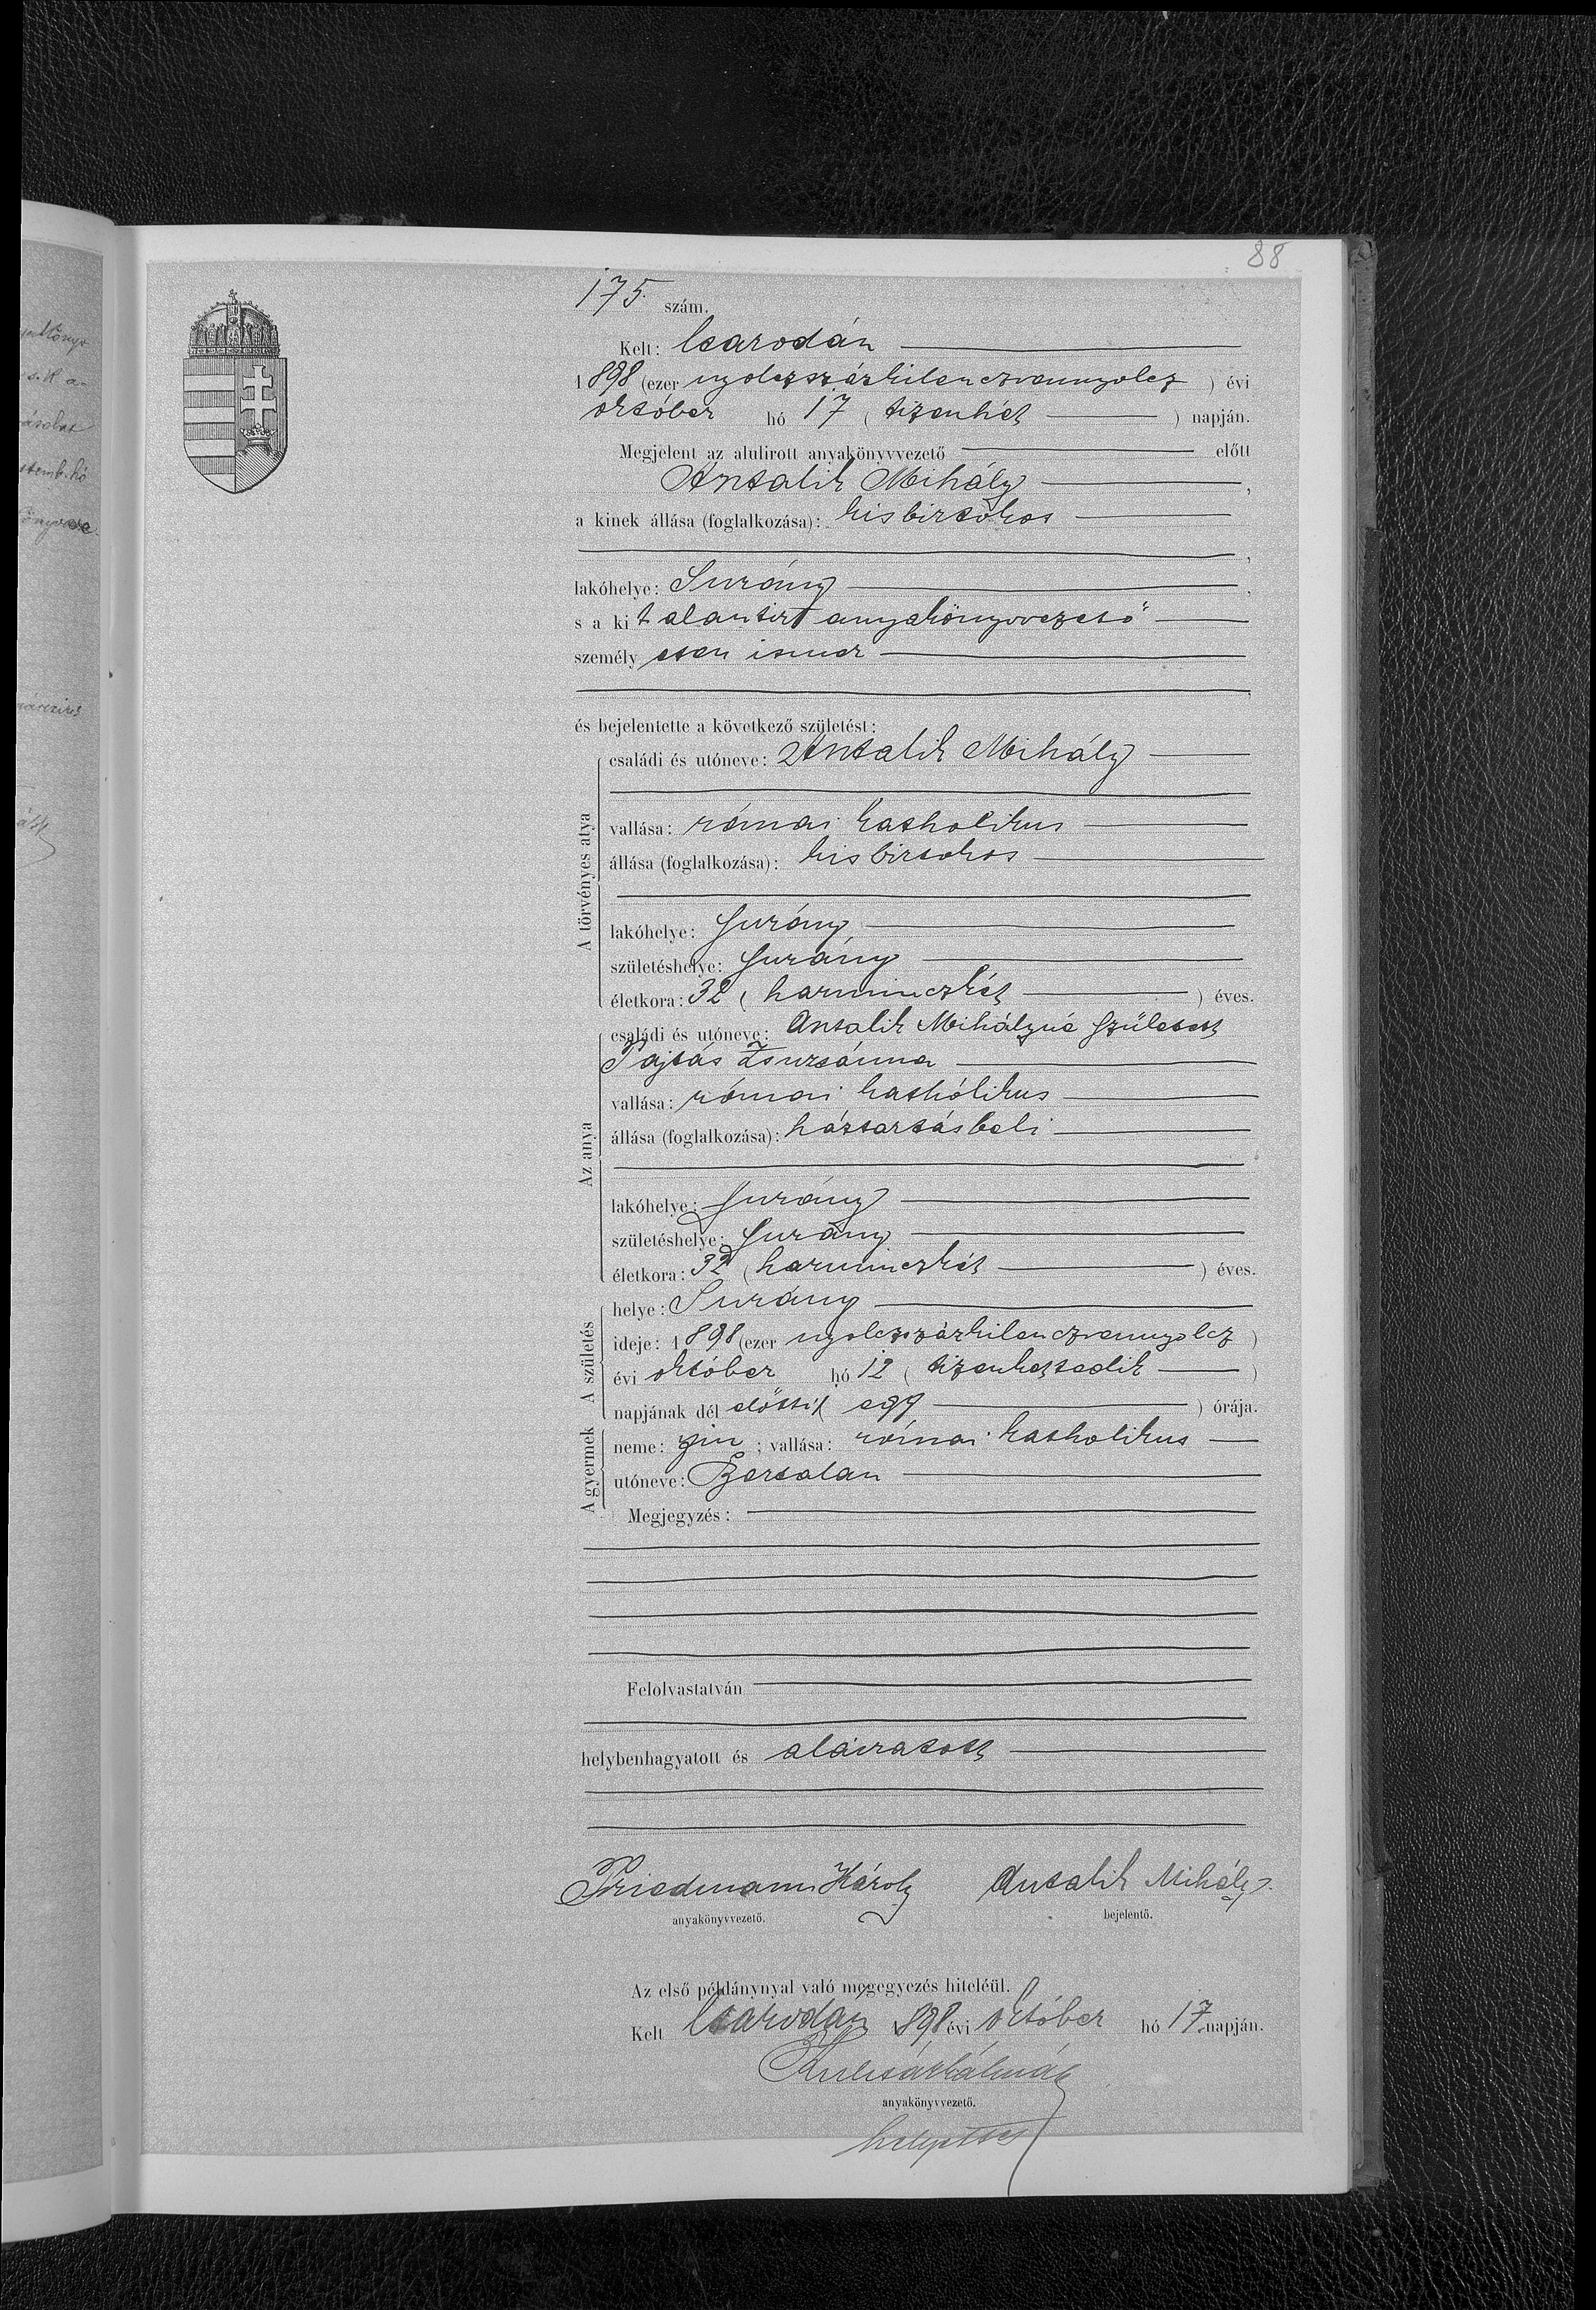 88
175. szám.
Kelt: Csarodán
1898 (ezer nyolczszázkilenczvennyolcz) évi
október hó 17 (tizenhét) napján.
Megjelent az alulirott anyakönyvvezető előtt
Antalik Mihály,
a kinek állása (foglalkozása): kisbirtokos
,
lakóhelye: Surány,
s a kit alantirt anyakönyvvezető
személyesen ismer
,
és bejelentette a következő születést:
A törvényes atya
családi és utóneve: Antalik Mihály
vallása: római katholikus
állása (foglalkozása): kisbirtokos
lakóhelye: Surány
születéshelye: Surány
életkora: 32 (harminczkét) éves.
Az anya
családi és utóneve: Antalik Mihályné született
Pajtás Zsuzsánna
vallása: római kathólikus
állása (foglalkozása): háztartásbeli
lakóhelye: Surány
születéshelye: Surány
életkora: 32 (harminczkét) éves.
A születés
helye: Surány
ideje: 1898 (ezer nyolczszázkilenczvennyolcz)
évi október hó 12 (tizenkettedik)
napjának dél előtti (egy) órája.
A gyermek
neme: fiu; vallása: római katholikus
utóneve: Bertalan
Megjegyzés:
Felolvastatván
helybenhagyatott és aláiratott
Friedmann Károly Antalik Mihály
anyakönyvvezető. bejelentő.
Az első példánynyal való megegyezés hiteléül.
Kelt Csarodán 1898 évi október hó 17 napján.
anyakönyvvezető.
helyettes